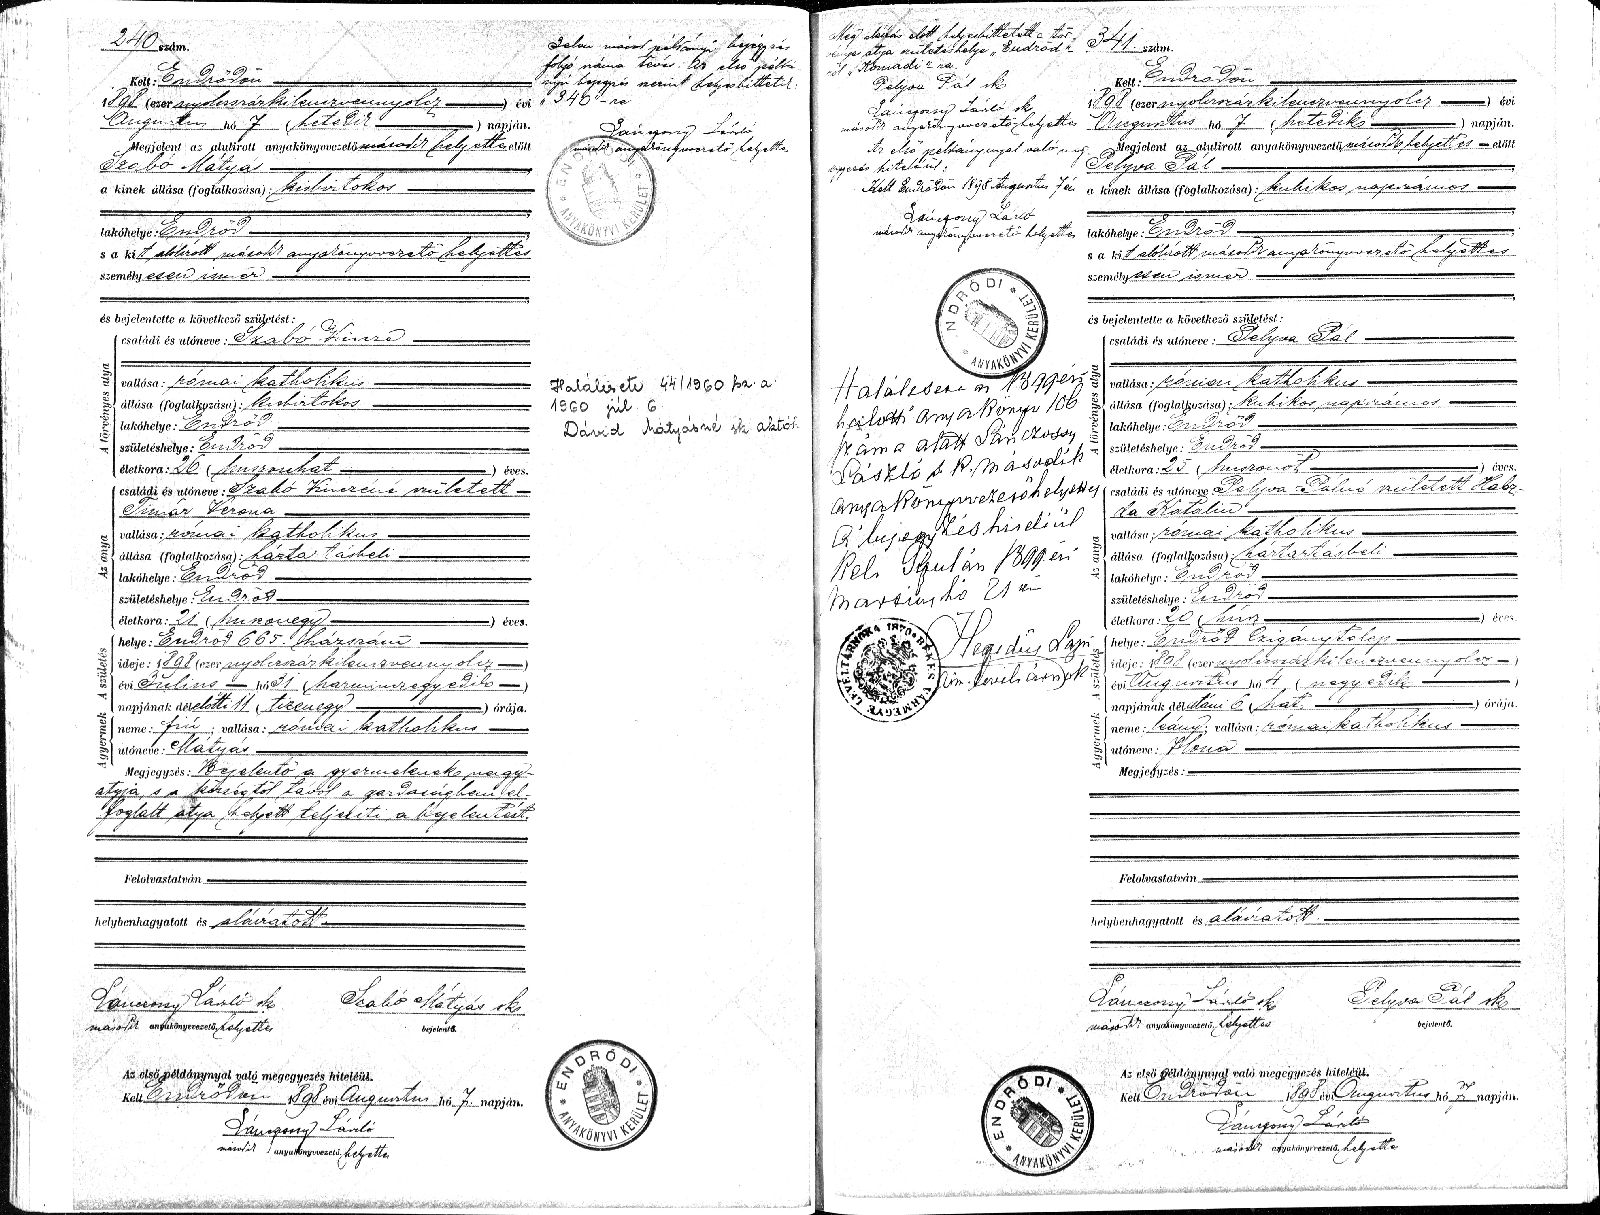 240 szám.
Kelt: Endrődön
1898 (ezer nyolcszázkilenczvennyolcz) évi
Augusztus hó 7 (hetedik) napján.
Megjelent az alulirott anyakönyvvezető második helyettes előtt
Szabó Mátyás
a kinek állása (foglalkozása): kisbirtokos
lakóhelye: Endrőd
s a kit alólirott második anyakönyvvezető helyettes
személyesen ismer
és bejelentette a következő születést:
A törvényes atya
családi és utóneve: Szabó Vincze
vallása: római katholikus
állása (foglalkozása): kisbirtokos
lakóhelye: Endrőd
születéshelye: Endrőd
életkora: 26 (huszonhat) éves.
Az anya
családi és utóneve: Szabó Vinczéné született
Timár Verona
vallása: római katholikus
állása (foglalkozása): házta tásbeli
lakóhelye: Endrőd
születéshelye: Endrőd
életkora: 21 (huszonegy) éves.
A születés
helye: Endrőd 665. házszám
ideje: 1898 (ezer nyolcszázkilenczvennyolcz)
évi Julius hó 31 (harminczegyedik)
napjának délelőtti 11 (tizenegy) órája.
A gyermek
neme: fiú; vallása: római katholikus
utóneve: Mátyás
Megjegyzés: Bejelentő a gyermeknek nagy-
atyja, s a községtől távol a gazdaságban el-
foglalt atya helyett teljesiti a bejelentést.
Felolvastatván
helybenhagyatott és aláiratott.
Lánczony László sk
második anyakönyvvezető, helyettes
Szabó Mátyás sk
bejelentő.
Az első példánynyal való megegyezés hiteléül.
Kelt Endrődön 1898 évi Augusztus hó 7. napján.
Lánczony László
második anyakönyvvezető, helyettes
Jelen másod példányi bejegyzés
folyó száma téves. Az első példá-
nyi bejegyzés szerint helyesbittetik
340-re
Lánczony László
másod anyakönyvvezető helyettes
ENDRŐDI
ANYAKÖNYVI KERÜLET
Halálesete 44/1960 hsz. a.
1960 júl. 6.
Dávid Mátyásné sk aktkv
ENDRŐDI
ANYAKÖNYVI KERÜLET
Még aláirás előtt helyesbittetett a tör-
vényes atya születéshelye „Endrőd"-
ről „Komádi"-ra.
Pelyva Pál sk
Lánczony László sk
második anyakönyvvezető helyettes
Az első példánynyal való meg-
egyezés hiteléül:
Kelt Endrődön 1898 Augusztus 7 én
Lánczony László
második anyakönyvvezető helyettes
ENDRŐDI
ANYAKÖNYVI KERÜLET
Halálesete az 1899 évi
halotti anyakönyv 106
száma alatt Lánczony
László s. k. második
anyakönyvvezető helyettes
A bejegyzés hiteléül
Kelt Gyulán 1899 évi
marczius hó 21 én
BÉKÉS VÁRMEGYE LEVÉLTÁRNOKA 1876
341. szám.
Kelt: Endrődön
1898 (ezer nyolcszázkilenczvennyolcz) évi
Augusztus hó 7 (hetedik) napján.
Megjelent az alulirott anyakönyvvezető, második helyettes előtt
Pelyva Pál
a kinek állása (foglalkozása): kubikos napszámos
lakóhelye: Endrőd
s a kit alólirott második anyakönyvvezető helyettes
személyesen ismer
és bejelentette a következő születést:
A törvényes atya
családi és utóneve: Pelyva Pál
vallása: római katholikus
állása (foglalkozása): kubikos napszámos
lakóhelye: Endrőd
születéshelye: Endrőd
életkora: 25 (huszonöt) éves.
Az anya
családi és utóneve: Pelyva Pálné született
Katalin
vallása: római katholikus
állása (foglalkozása): háztartásbeli
lakóhelye: Endrőd
születéshelye: Endrőd
életkora: 20 (húsz) éves.
A születés
helye: Endrőd Czigánytelep
ideje: 1898 (ezer nyolcszázkilenczvennyolcz)
évi Augusztus hó 4 (negyedik)
napjának délutáni 6 (hat) órája.
A gyermek
neme: leány; vallása: római katholikus
utóneve: Ilona
Megjegyzés:
Felolvastatván
helybenhagyatott és aláiratott.
Lánczony László sk
második anyakönyvvezető, helyettes
Pelyva Pál sk
bejelentő.
Az első példánynyal való megegyezés hiteléül.
Kelt Endrődön 1898 évi Augusztus hó 7 napján.
Lánczony László
második anyakönyvvezető, helyettes
ENDRŐDI
ANYAKÖNYVI KERÜLET